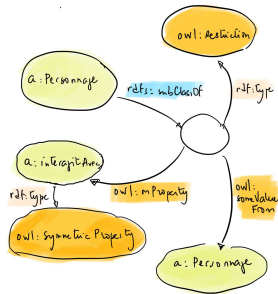 owl:Restriction
a:Personnage
rdfs:subClassOf
rdf:type
a:interagitAvec
rdf:type
owl:onProperty
owl:
someValue
From
owl:SymmetricProperty
a:Personnage